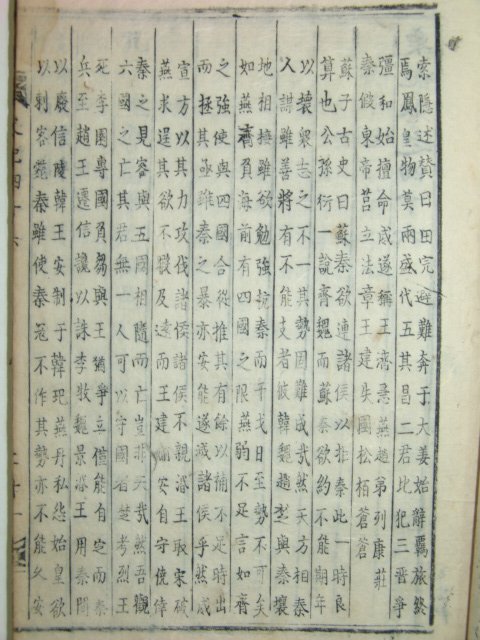 索隱述贊曰田完避難奔于大姜始辭羈旅終
焉鳳皇物莫兩盛代五其昌二君比犯三晉爭
彊和始擅命威遂稱王濟急燕趙弟列康莊
秦假東帝莒立法章王建失國松栢蒼蒼
蘇子古史曰蘇秦欲連諸侯以拒秦此一時良
算也公孫衍一說齊魏而蘇秦欲約不能期年
以壞衆志之不一其難成哉然天方相秦
人謀雖善將有不能支者彼韓魏趙楚與秦壤
地相接雖欲勉強抗秦而干戈日至勢不可矣
如燕齊負海前有四國之限燕弱不足言如齊
之強使與四國合從推其有餘以補不足時出
而拯其亟雖秦之暴亦安能遂滅諸侯乎然威
宣方以其力攻伐諸侯諸侯不親湣王取宋破
燕求逞其欲不獲及遠而王建媮安自守僥倖
秦之見容與五國相隨而亡豈非天哉然吾觀
六國之亡其君無一人可以守國者楚考烈王
死李園專國負芻與王猶爭立僅能自定而秦
兵至趙王遷信讒以誅李牧魏景湣王用秦間
以廢信陵韓王安制于韓玘燕丹私怨始皇欲
以刺客斃秦雖使秦寇不作其勢亦不能久安
史記四十六
二十一